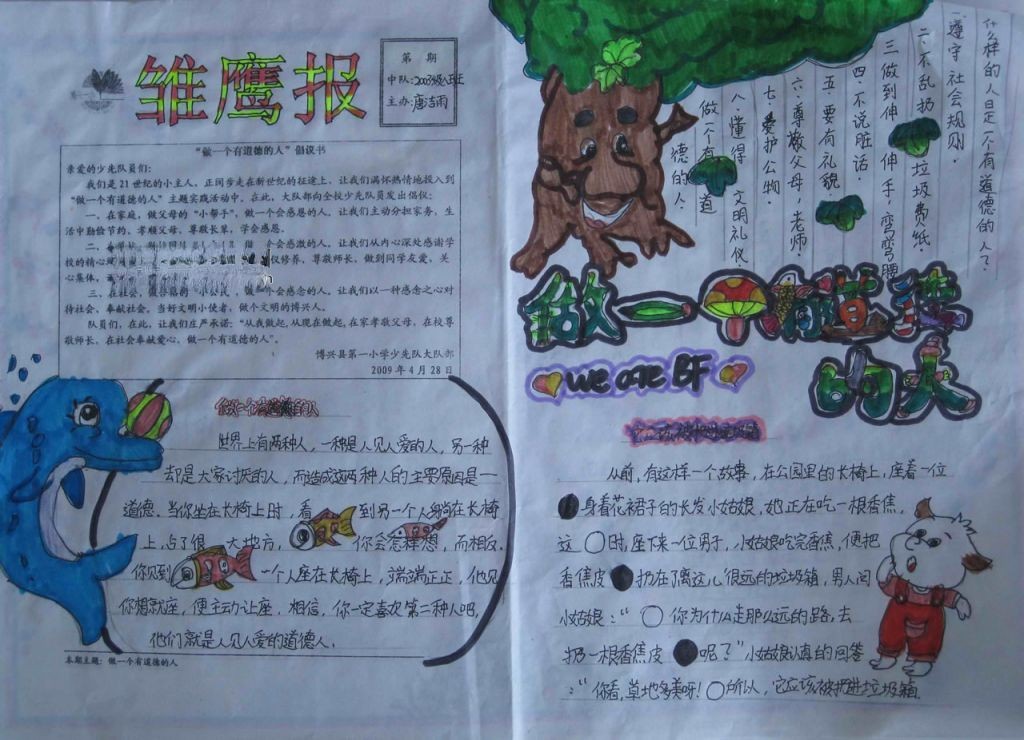 雏鹰报
第 期
中队:2003级八班
主办:唐洁雨
“做一个有道德的人”倡议书
亲爱的少先队员们:
我们是21世纪的小主人,正阔步走在新世纪的征途上,让我们满怀热情地投入到
“做一个有道德的人”主题实践活动中。在此,大队部向全校少先队员发出倡仪:
一、在家庭,做父母的“小帮手”,做一个会感恩的人。让我们主动分担家务,生
活中勤俭节约、孝顺父母、尊敬长辈,学会感恩。
二、 会感激的人。让我们从内心深处感谢学
校的精心 仪修养,尊敬师长,做到同学友爱,关
心集体,
三、在社会, 会感念的人。让我们以一种感念之心对
待社会、奉献社会。当好文明小使者,做个文明的博兴人。
队员们,在此,让我们庄严承诺:“从我做起,从现在做起,在家孝敬父母,在校尊
敬师长,在社会奉献爱心,做一个有道德的人”。
博兴县第一小学少先队大队部
2009年4月28日
做一个有道德的人
世界上有两种人,一种是人见人爱的人,另一种
却是大家讨厌的人,而造成这两种人的主要原因是一
道德.当你坐在长椅上时,看到另一个人躺在长椅
上,占了很大地方,你会怎样想,而相反.
你见到一个人座在长椅上,端端正正,他见
你想就座,便主动让座,相信,你一定喜欢第二种人吧,
他们就是人见人爱的道德人.
本期主题:做一个有道德的人
什么样的人是一个有道德的人了?
一遵守社会规则.
二不乱扔垃圾费纸.
三做到伸伸手,弯弯腰
四.不说脏话.
五.要有礼貌.
六.尊敬父母,老师.
七.爱护公物.
八.懂得文明礼仪.
做一个有道德的人.
做一个有道德
的人
We are BF
从前,有这样一个故事,在公园里的长椅上,座着一位
身着花裙子的长发小姑娘,她正在吃一根香焦,
这时,座下来一位男子,小姑娘吃完香焦,便把
香焦皮扔在了离这儿很远的垃圾箱,男人问
小姑娘:“你为什么走那么远的路,去
扔一根香焦皮呢?”小姑娘认真的回答
:“你看,草地多美呀!所以,它应该被扔进垃圾箱.